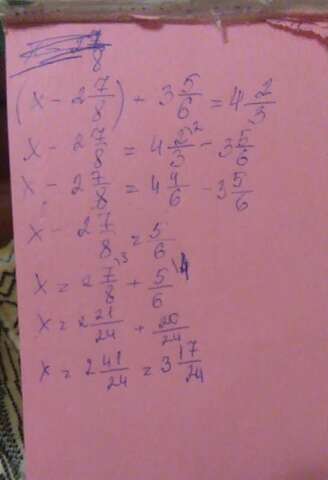 (x - 2 7/8) + 3 5/6 = 4 2/3
x - 2 7/8 = 4 2/3 ² - 3 5/6
x - 2 7/8 = 4 4/6 - 3 5/6
x - 2 7/8 = 5/6
x = 2 7/8 ³ + 5/6 ⁴
x = 2 21/24 + 20/24
x = 2 41/24 = 3 17/24